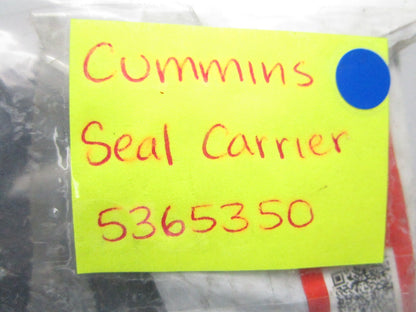 Cummins
Seal Carrier
5365350